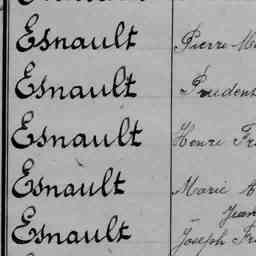 Esnault Pierre
Esnault Prudent
Esnault Henri
Esnault Marie
Jean
Esnault Joseph